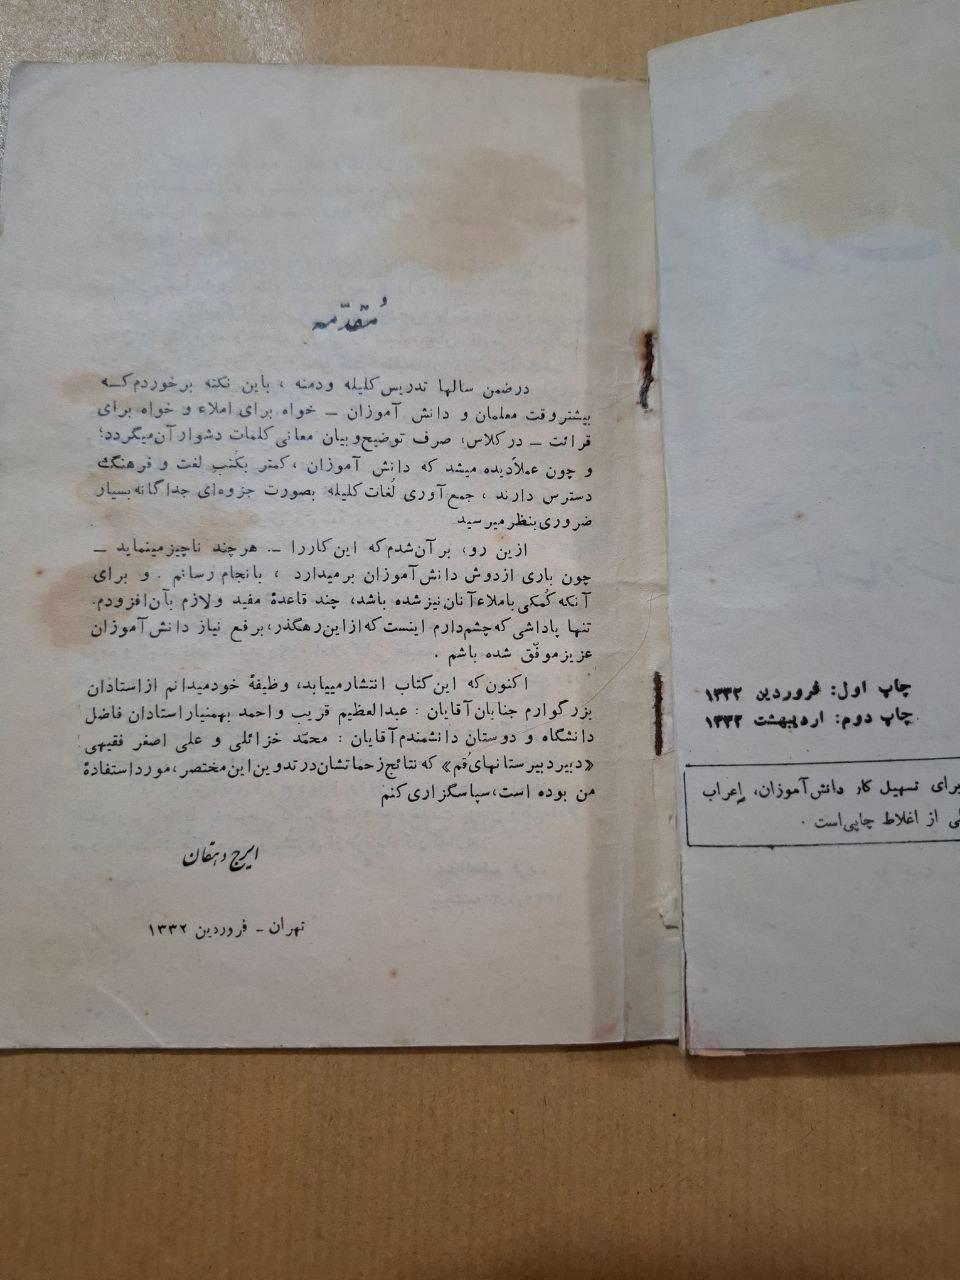 چاپ اول: فروردین ۱۳۳۲
چاپ دوم: اردیبهشت ۱۳۳۲
برای تسهیل کار دانش‌آموزان، اِعراب
از اغلاط چاپی‌است .
مُقدّمه
درضمن سالها تدریس کلیله ودمنه ، باین نکته برخوردم‌که
بیشتر وقت معلمان و دانش آموزان ــ خواه برای املاء و خواه برای
قرائت ــ درکلاس، صرف توضیح‌وبیان معانی کلمات دشوار آن‌میگردد؛
و چون عملاًدیده میشد که دانش آموزان ، کمتر بکُتبِ لغت و فرهنگ
دسترس دارند ، جمع‌آوری لُغات کلیله بصورت جزوه‌ای جداگانه‌بسیار
ضروری‌بنظرمیرسید
ازین رو، برآن‌شدم‌که این‌کاررا ــ هرچند ناچیزمینماید ــ
چون باری ازدوش دانش‌آموزان برمیدارد ، بانجام رسانم . و برای
آنکه کُمکی باملاءآنان‌نیزشده باشد، چند قاعدهٔ مفید ولازم بآن‌افزودم.
تنها پاداشی که‌چشم‌دارم اینست که‌ازاین‌رهگذر،برفع نیاز دانش‌آموزان
عزیزموفّق شده باشم .
اکنون‌که این‌کتاب انتشارمییابد، وظیفهٔ خودمیدانم ازاستادان
بزرگوارم جنابان‌آقایان : عبدالعظیم قریب واحمد بهمنیاراستادان فاضل
دانشگاه و دوستان دانشمندم‌آقایان : محمّد خزائلی و علی اصغر فقیهی
«دبیردبیرستانهای‌قُم» که نتائج‌زحماتشان‌درتدوین‌این‌مختصر،مورداستفادهٔ
من بوده است،سپاسگزاری‌کنم
ایرج دهقان
تهران ــ فروردین ۱۳۳۲